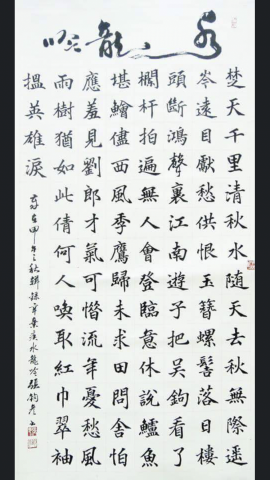 水龍吟
楚天千里清秋水随天去秋無際遥
岑遠目獻愁供恨玉簪螺髻落日樓
頭斷鴻聲裏江南遊子把吴鉤看了
欄杆拍遍無人會登臨意休説鱸魚
堪鱠儘西風季鷹歸未求田問舍怕
應羞見劉郎才氣可惜流年憂愁風
雨樹猶如此倩何人喚取紅巾翠袖
揾英雄淚
歲在甲午之秋錄辛棄疾水龍吟張鈞